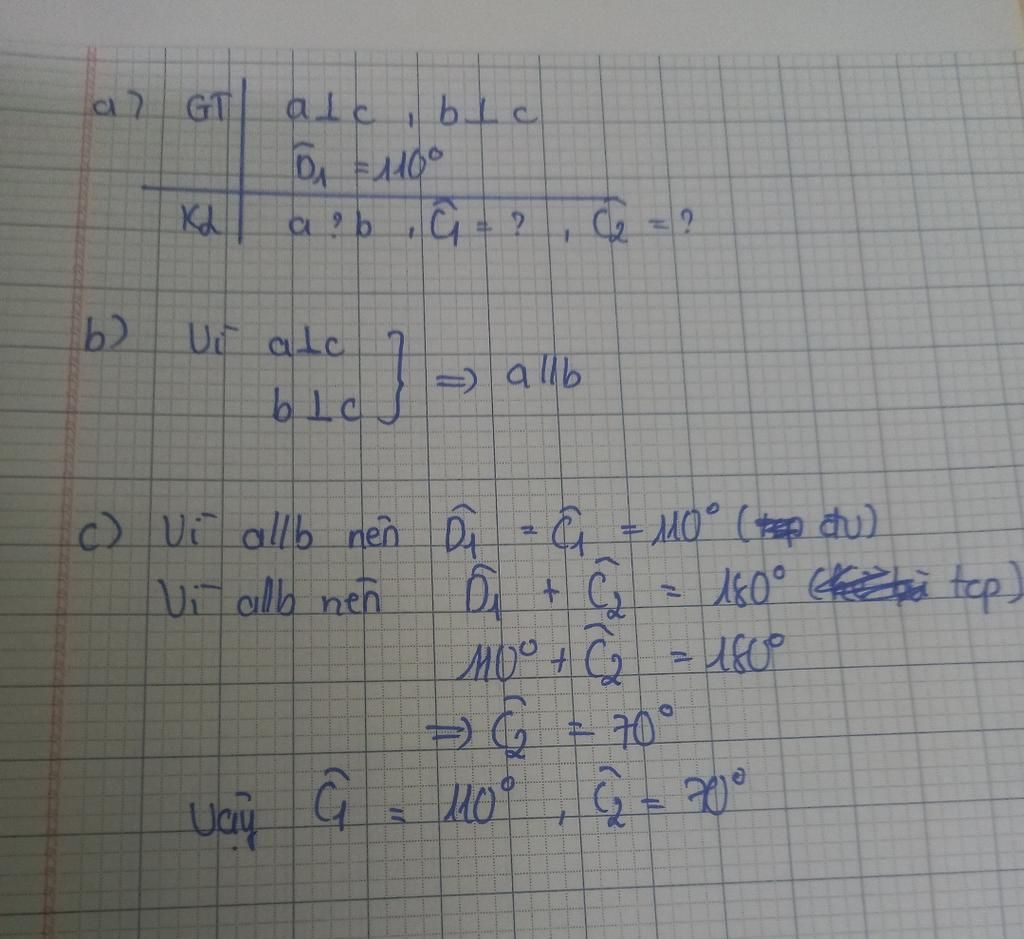 a) GT a⊥c , b⊥c
D̂₁ = 110°
KL a ? b , Ĉ₁ = ? , Ĉ₂ = ?
b) Vì a⊥c
b⊥c } ⇒ a//b
c) Vì a//b nên D̂₁ = Ĉ₁ = 110° ( đv)
Vì a//b nên D̂₁ + Ĉ₂ = 180° ( tcp)
110° + Ĉ₂ = 180°
⇒ Ĉ₂ = 70°
Vậy Ĉ₁ = 110° , Ĉ₂ = 70°